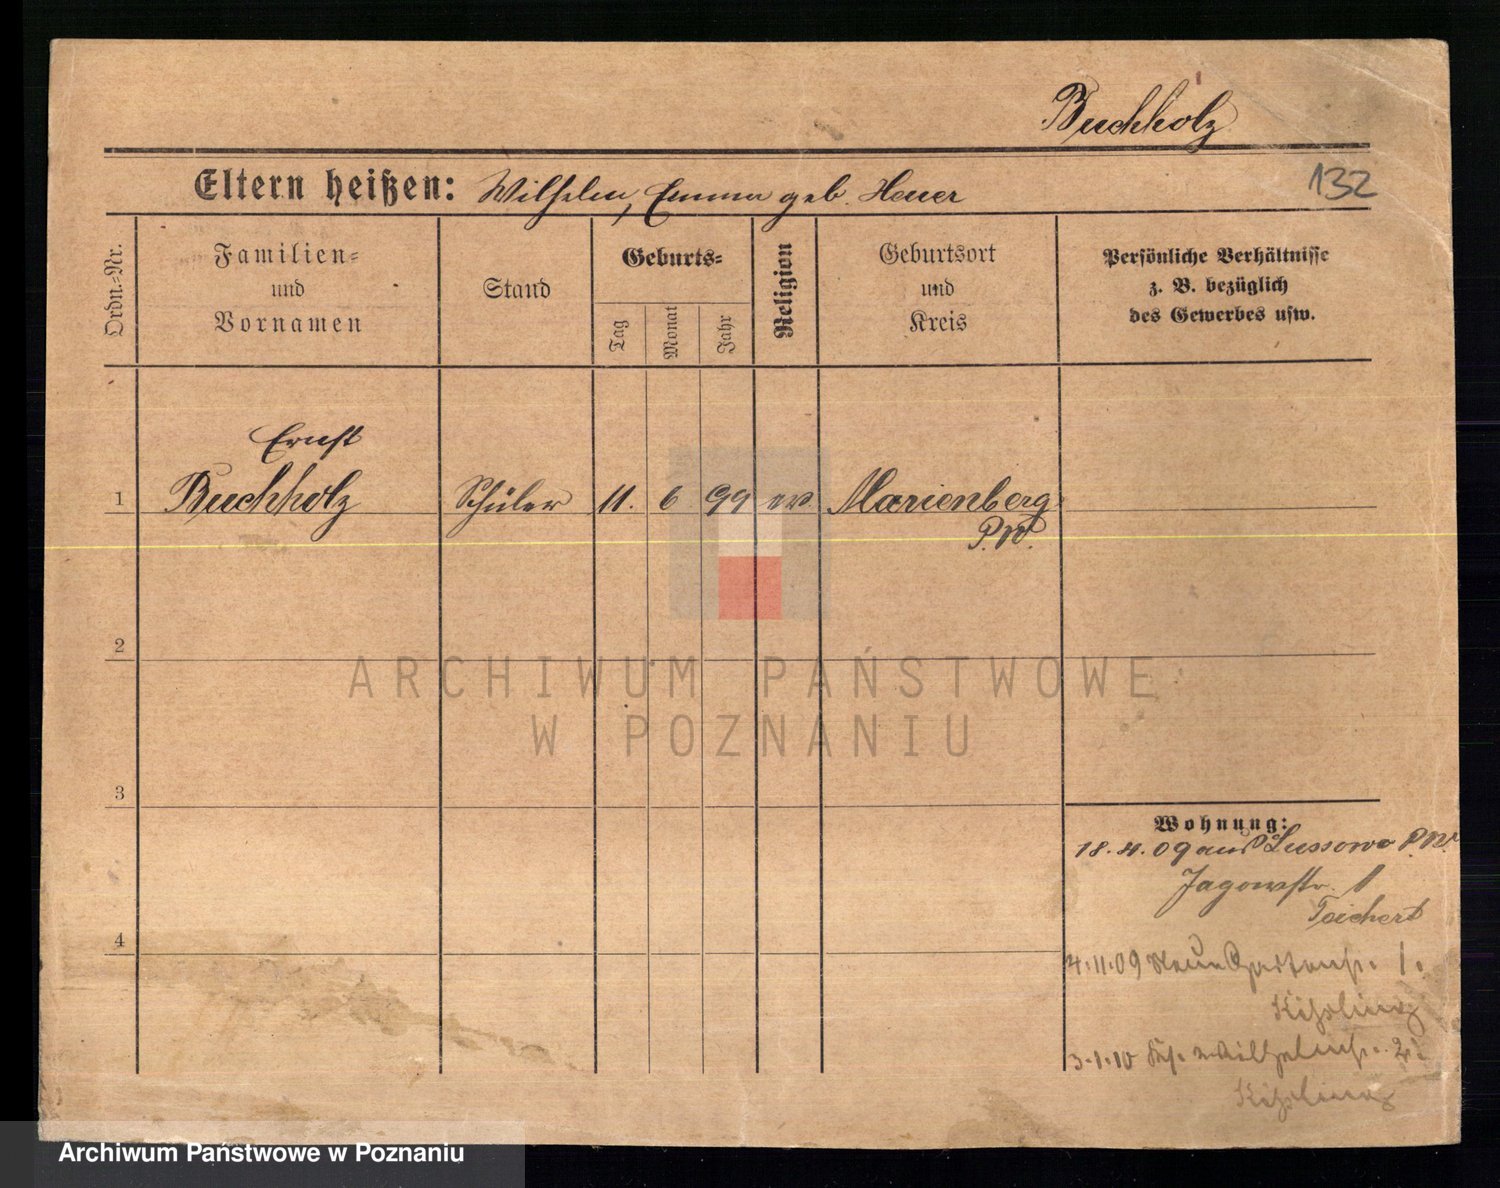 Buchholz
132
Eltern heißen: Wilhelm, Emma geb. Heuer
Ordn.=Nr.
Familien=
und
Vornamen
Stand
Geburts=
Tag
Monat
Jahr
Religion
Geburtsort
und
Kreis
Persönliche Verhältnisse
z. B. bezüglich
des Gewerbes usw.
Ernst
1 Buchholz Schüler 11. 6 99 ev. Marienberg
P.W.
2
3
4
Wohnung:
18.4.09 aus Lussowo P.W.
Jagowstr. 1
Teichert
4.11.09 Neue Gartenstr. 1.
3.1.10 Wilhelmstr. 2
ARCHIWUM PAŃSTWOWE
W POZNANIU
Archiwum Państwowe w Poznaniu